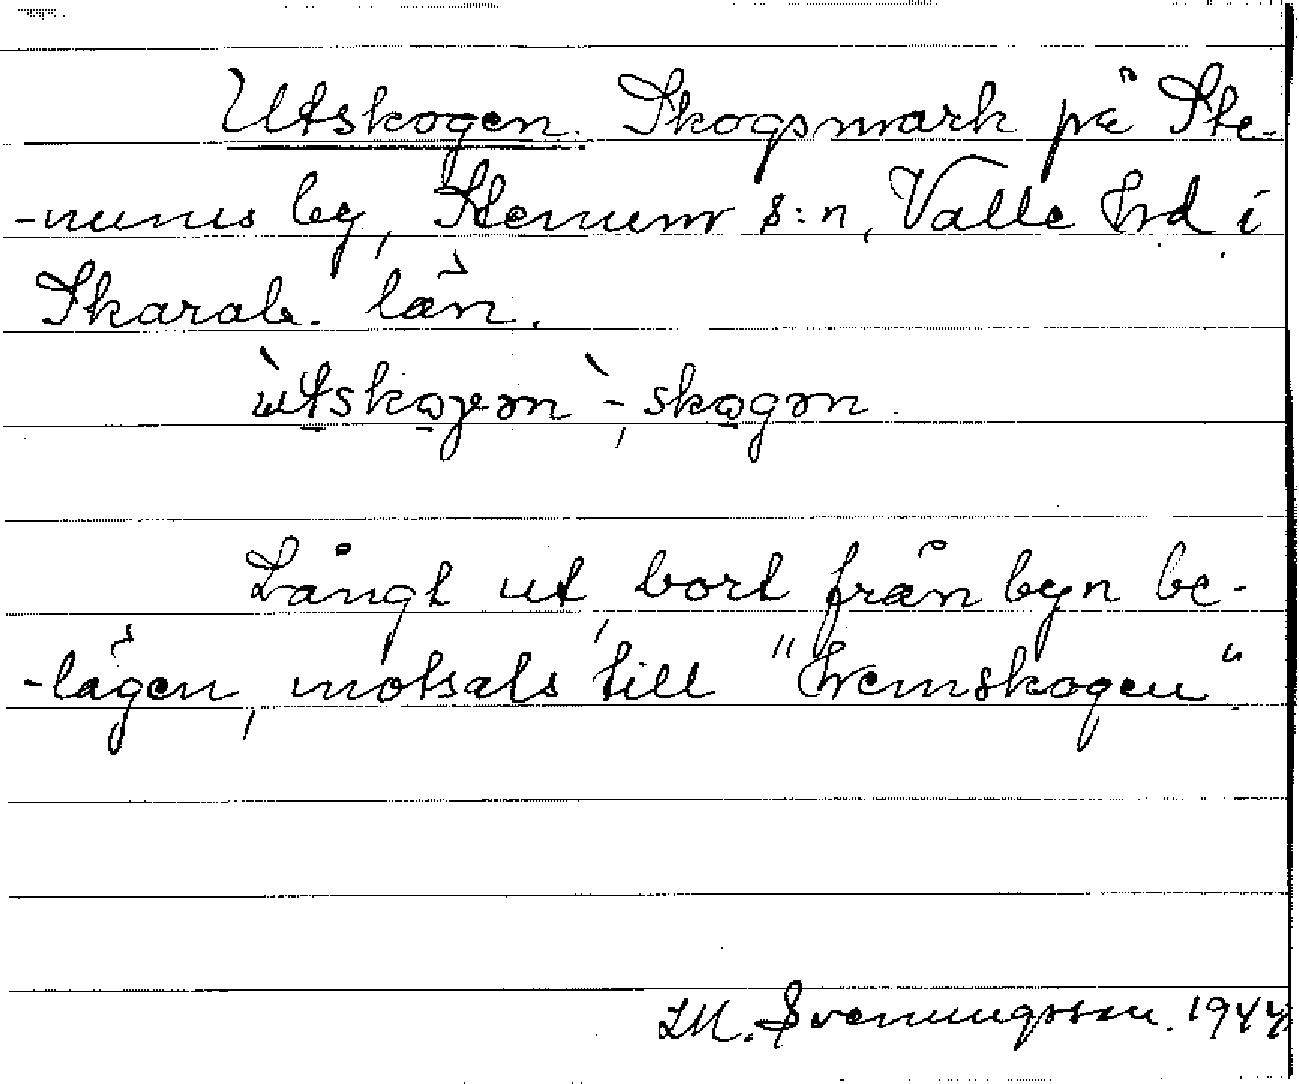 Utskogen. Skogsmark på Ste-
-nums by, Stenum s:n, Valle hrd i
Skarab. län.
ùtskọgən`-, skọgən.
Långt ut, bort från byn be-
-lägen, motsats till "Hemskogen".
M. Svenungsson. 1944